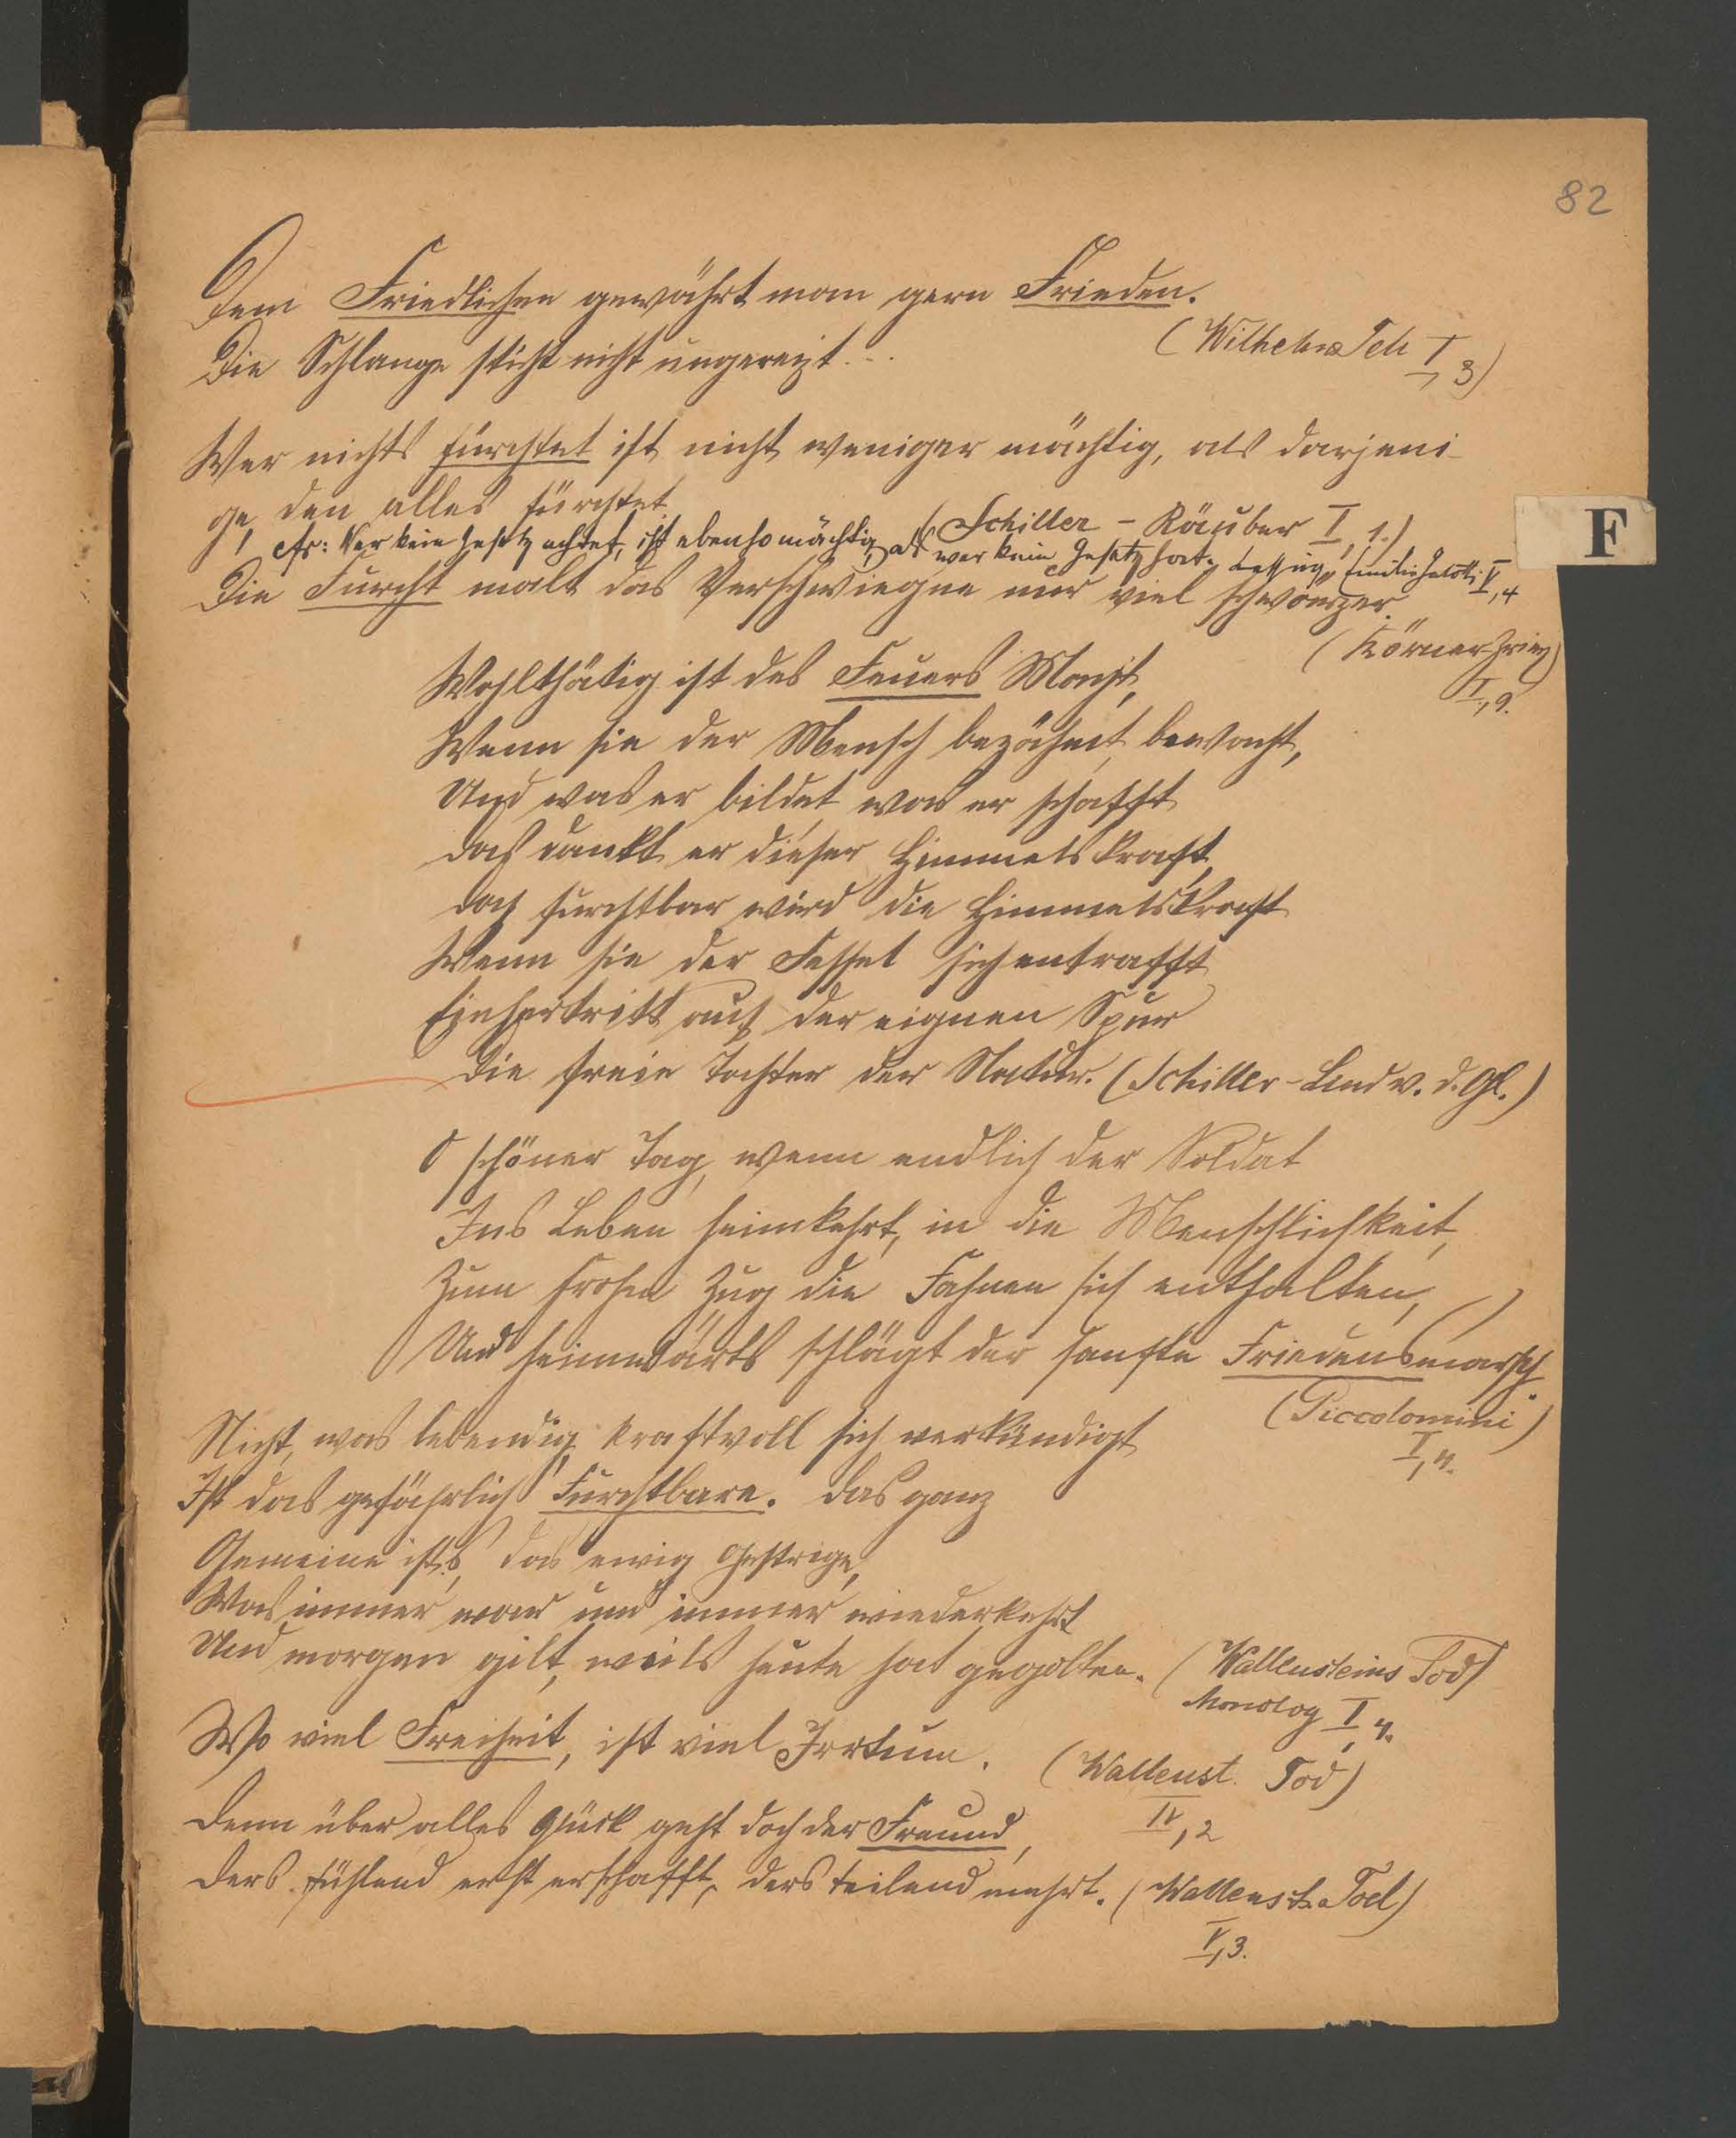 82
Dem Friedlichen gewährt man gern Frieden.
(Wilhelm Tell I, 3)
Die Schlange sticht nicht ungereizt...
Wer nichts fürchtet ist nicht weniger mächtig, als derjeni-
ge, den alles fürchtet.
(Schiller - Räuber I, 1.)
cfr: Wer kein Gesetz achtet, ist ebenso mächtig, als wer kein Gesetz hat. Lessing, Emilia Galotti V, 4
F
Die Furcht malt das Verschwiegne nur viel schwärzer.
(Körner Zriny)
I, 9.
Wohlthätig ist des Feuers Macht,
Wenn sie der Mensch bezähmt, bewacht,
Und was er bildet was er schafft
das dankt er dieser Himmelskraft,
doch furchtbar wird die Himmelskraft
Wenn sie der Fessel sich entrafft
Einhertritt auf der eignen Spur
Die freie Tochter der Natur. (Schiller - Lied v. d. Gl.)
O schöner Tag, wenn endlich der Soldat
Ins Leben heimkehrt, in die Menschlichkeit,
Zum frohen Zug die Fahnen sich entfalten,
Und heimwärts schlägt der sanfte Friedensmarsch.
(Piccolomini)
I, 4.
Nicht, was lebendig, kraftvoll sich verkündigt
Ist das gefährlich Furchtbare. Das ganz
Gemeine ist's, das ewig Gestrige,
Was immer war und immer wiederkehrt
Und morgen gilt, weils heute hat gegolten. (Wallensteins Tod)
Monolog I, 4.
Wo viel Freiheit, ist viel Irrtum. (Wallenst. Tod)
IV, 2
Denn über alles Glück geht doch der Freund,
Ders fühlend erst erschafft, ders teilend mehrt. (Wallenst. Tod)
V, 3.